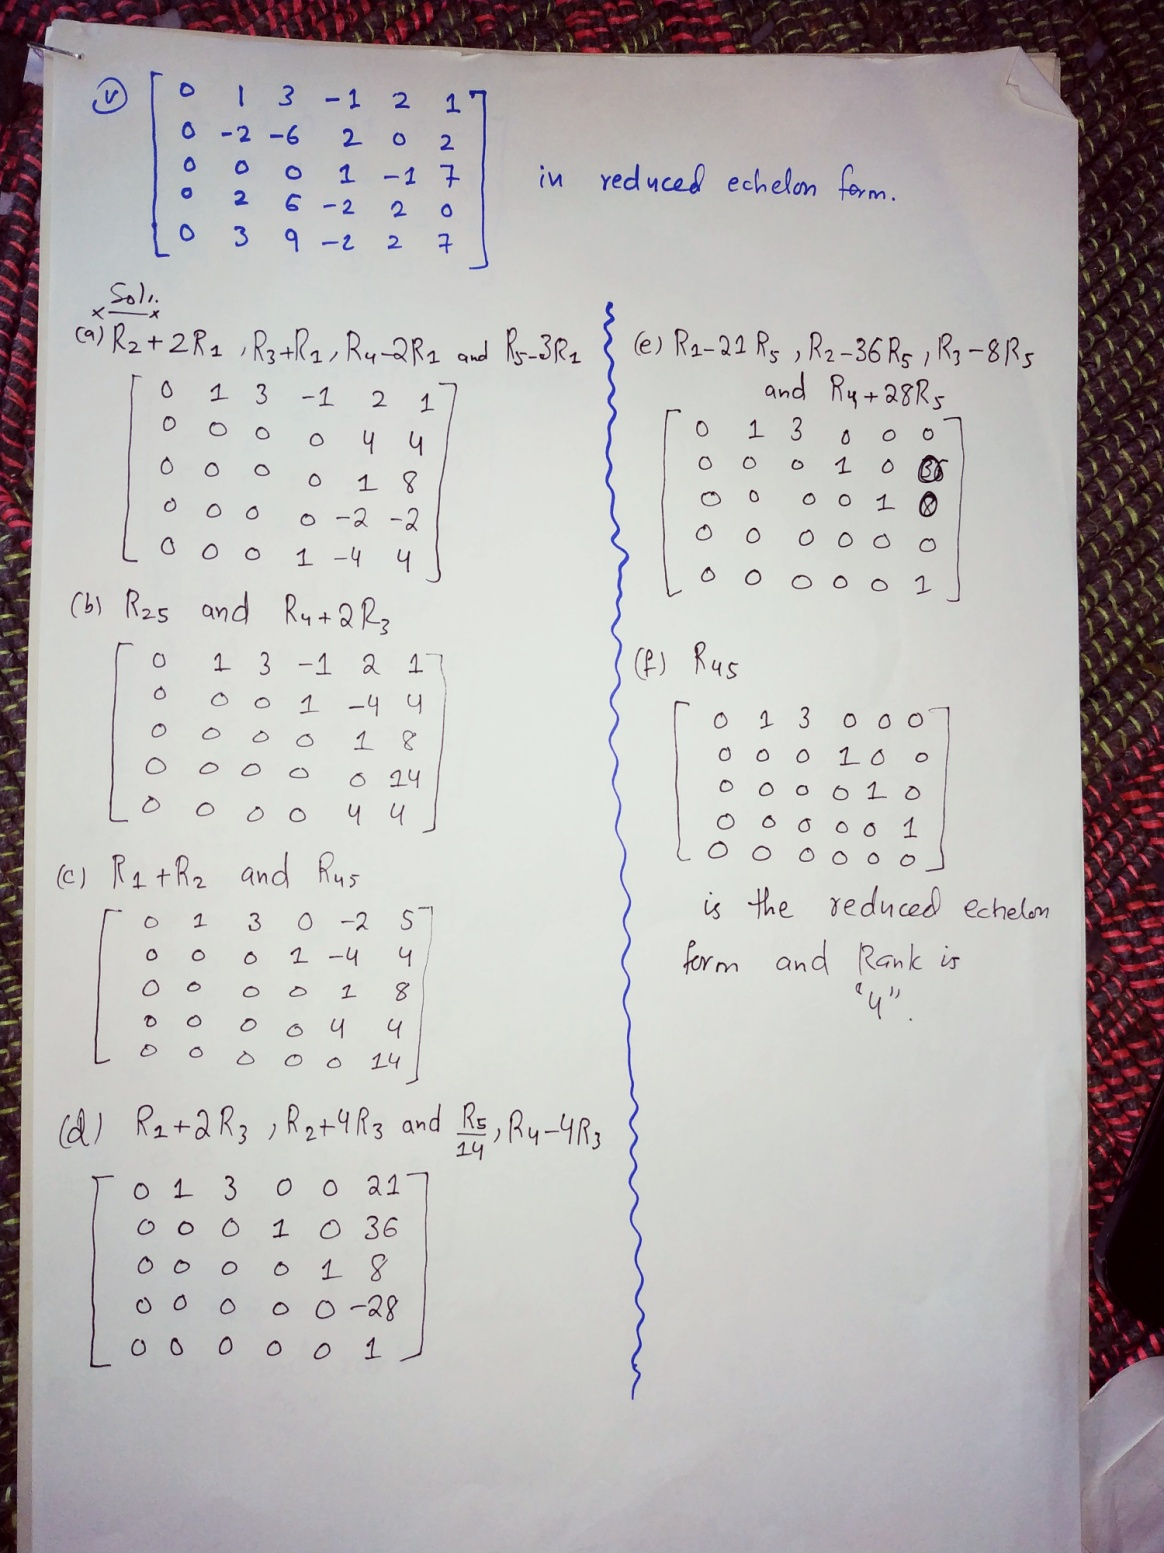 (v)
0 1 3 -1 2 1
0 -2 -6 2 0 2
0 0 0 1 -1 7
0 2 6 -2 2 0
0 3 9 -2 2 7
in reduced echelon form.
Sol:.
(a) R2 + 2R1 , R3+R1 , R4-2R1 and R5-3R1
0 1 3 -1 2 1
0 0 0 0 4 4
0 0 0 0 1 8
0 0 0 0 -2 -2
0 0 0 1 -4 4
(b) R25 and R4+2R3
0 1 3 -1 2 1
0 0 0 1 -4 4
0 0 0 0 1 8
0 0 0 0 0 14
0 0 0 0 4 4
(c) R1+R2 and R45
0 1 3 0 -2 5
0 0 0 1 -4 4
0 0 0 0 1 8
0 0 0 0 4 4
0 0 0 0 0 14
(d) R1+2R3 , R2+4R3 and R5/14 , R4-4R3
0 1 3 0 0 21
0 0 0 1 0 36
0 0 0 0 1 8
0 0 0 0 0 -28
0 0 0 0 0 1
(e) R1-21R5 , R2-36R5 , R3-8R5
and R4+28R5
0 1 3 0 0 0
0 0 0 1 0
0 0 0 0 1 0
0 0 0 0 0 0
0 0 0 0 0 1
(f) R45
0 1 3 0 0 0
0 0 0 1 0 0
0 0 0 0 1 0
0 0 0 0 0 1
0 0 0 0 0 0
is the reduced echelon
form and Rank is
"4".